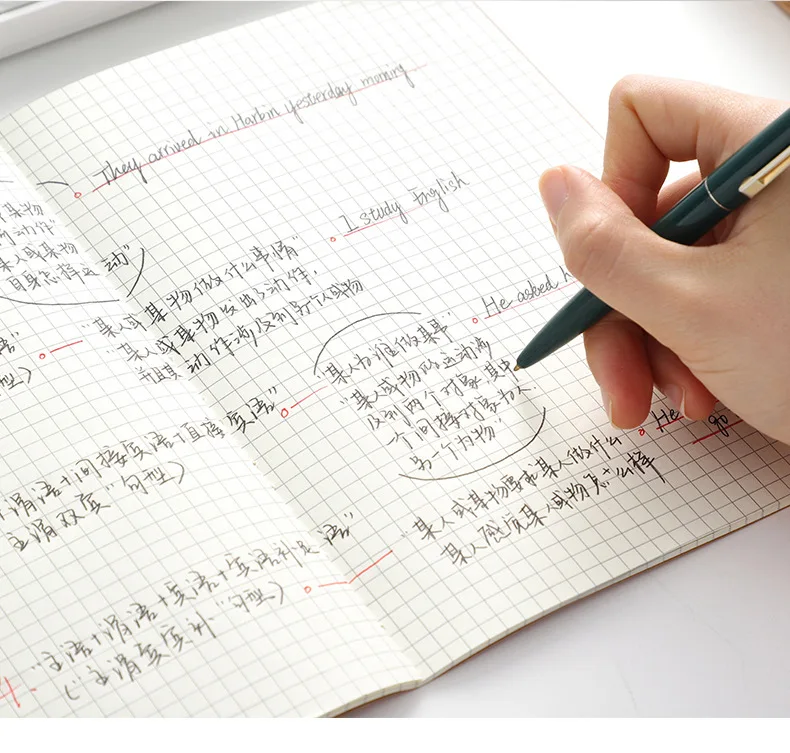 They arrived in Harbin yesterday morning
I study English
某物
动作"
某人或某物
自身怎样运动"
"某人或某物做什么事情"
"某人或某物发出动作,
并且其动作涉及到另个人或物
He asked h
型)
某人为谁做某事"
"某人或物的运动涉
及到两个对象,其中
一个间接对象为人.
另一个为物"
He
go
谓语+间接宾语+直接宾语"
主谓双宾"句型)
某人或某物要求某人做什么
某人感觉某人或物怎么样
4. "主语+谓语+宾语+宾语补足语"
("主谓宾宾补"句型)